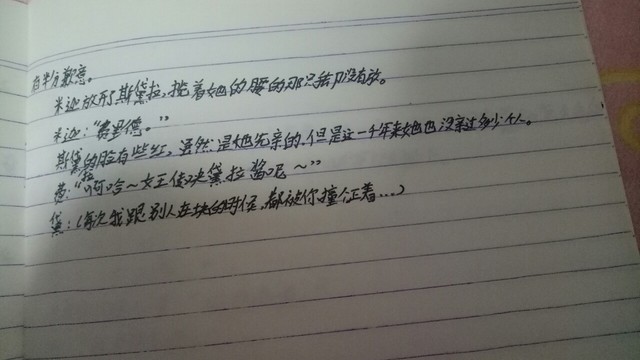 有半分歉意。
米迦放开了斯黛拉，搂着她的腰的那只手却没有放。
米迦：“费里德。”
斯黛拉的脸有些红，虽然是她先亲的，但是这一千年来她也没亲过多少个人。
费：“啊哈～女王陛下黛拉酱呢～”
黛：（每次我跟别人在一块的时候，都被你撞个正着…）